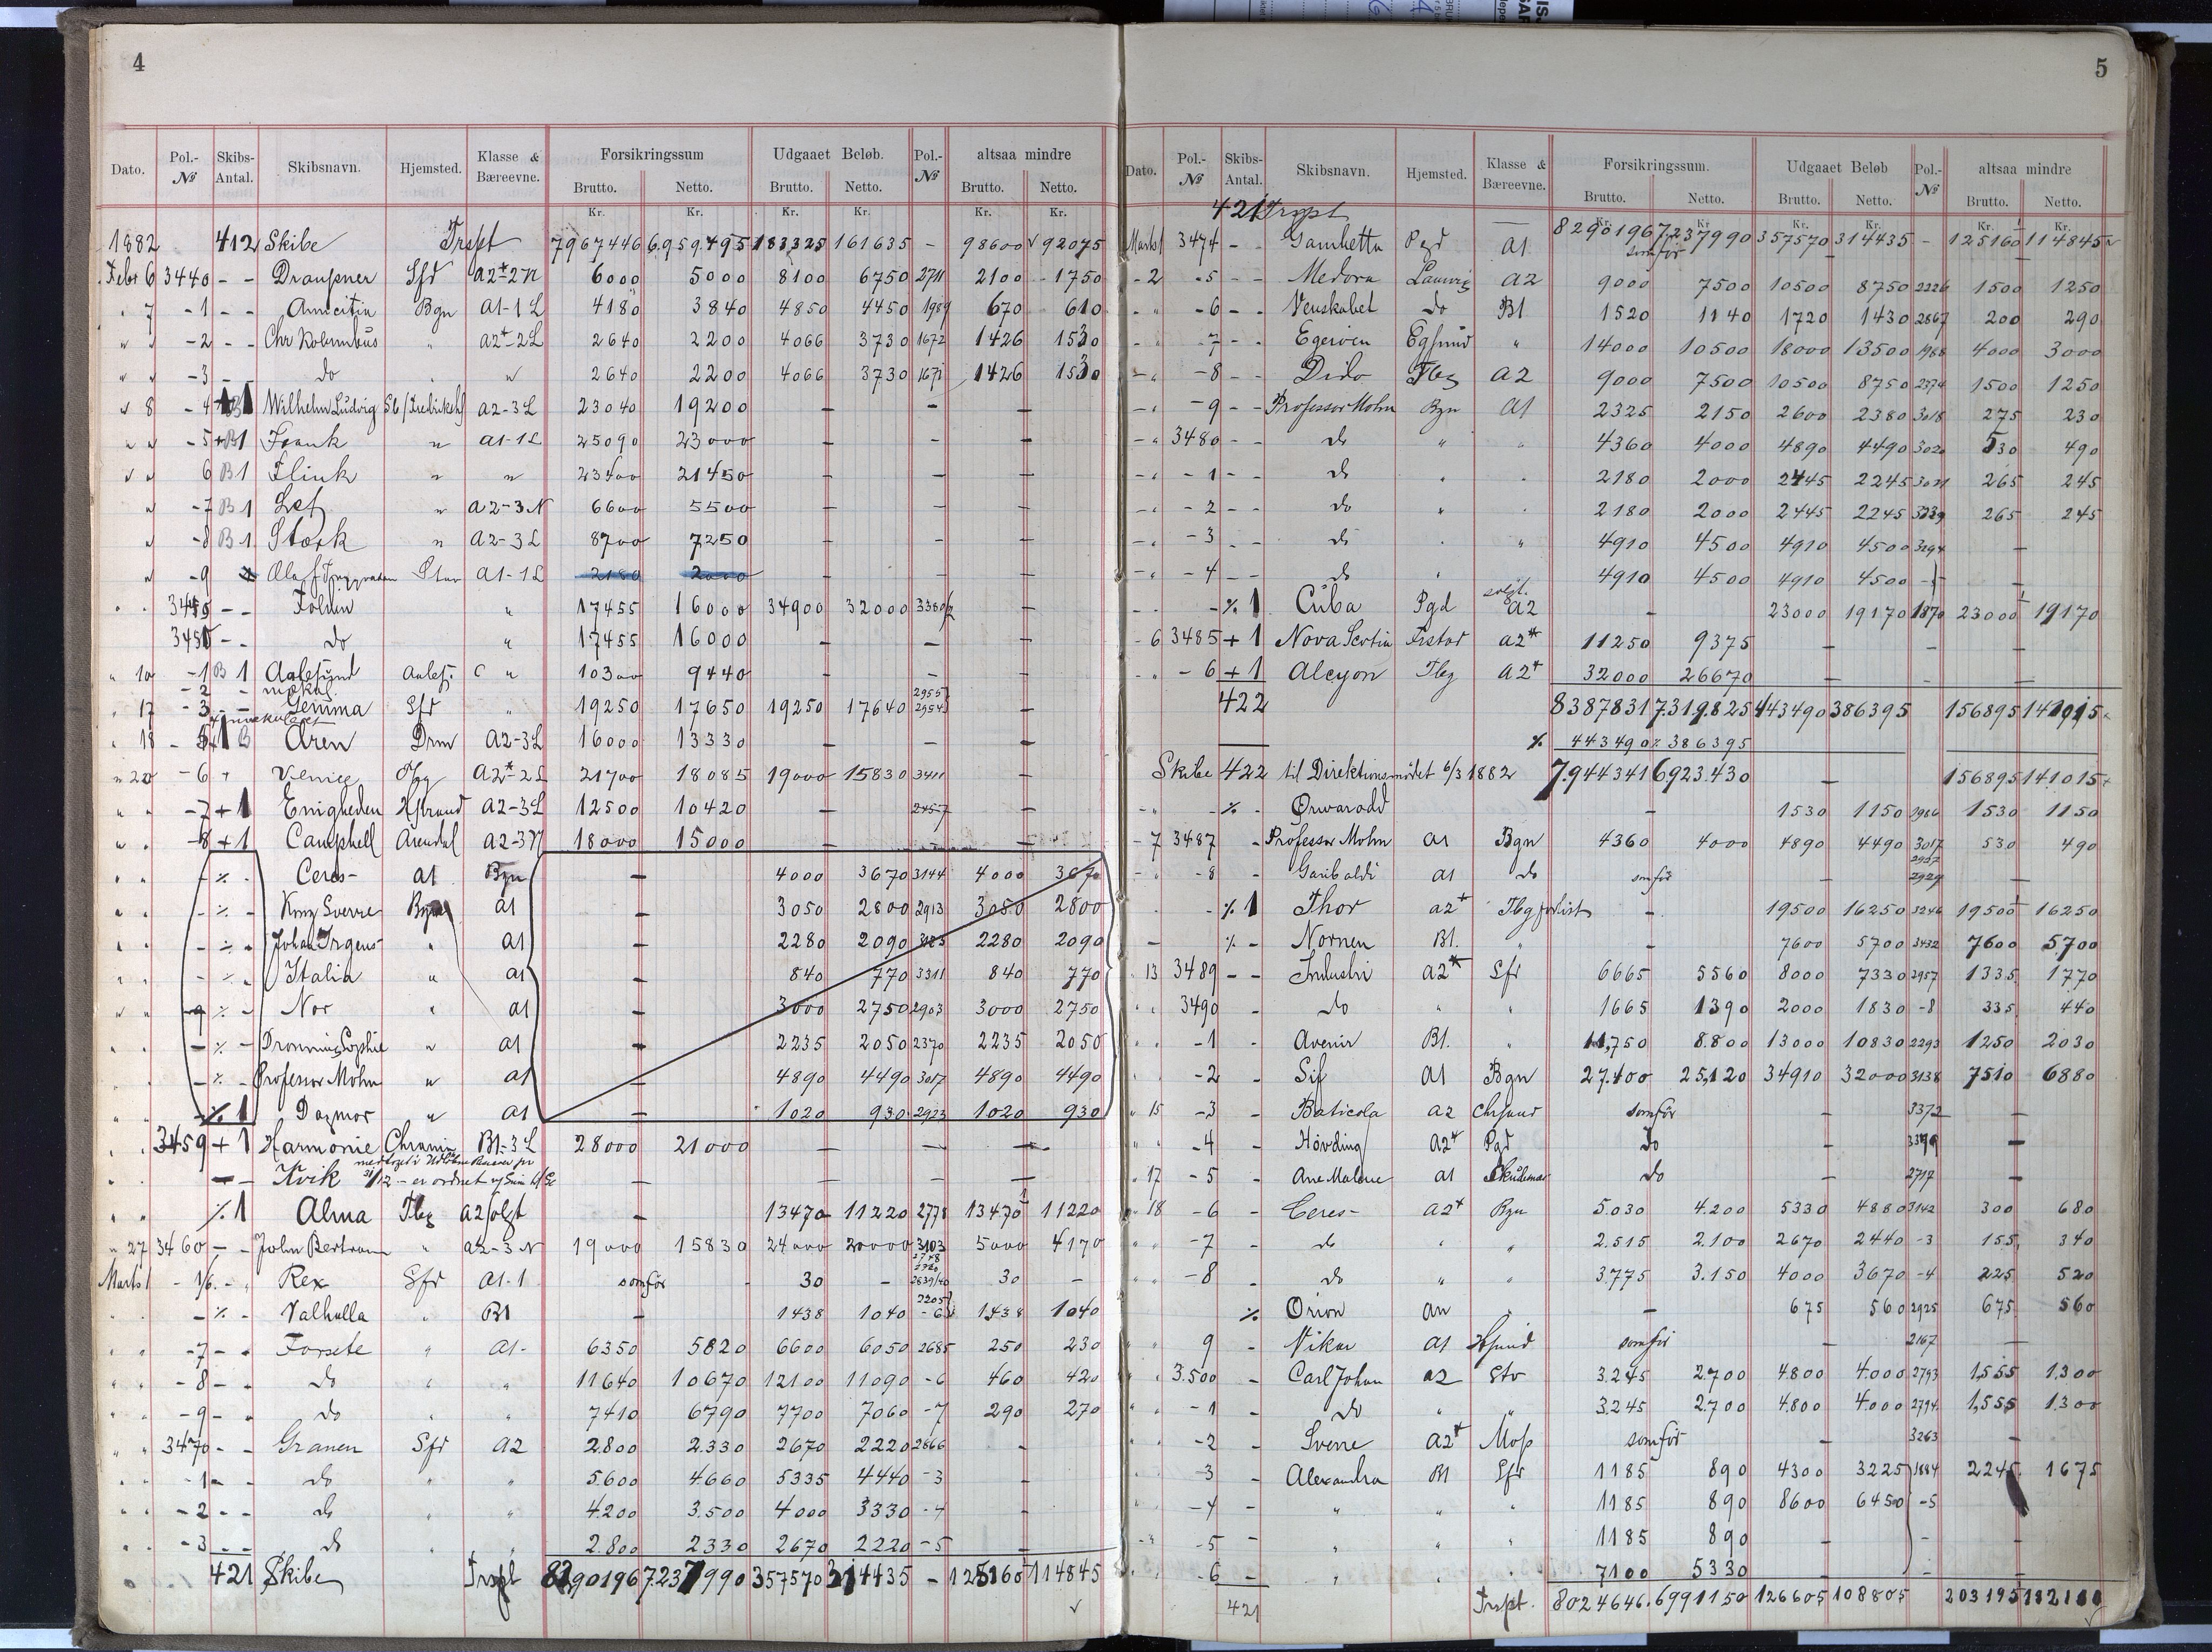 4
Dato. Pol.- № Skibs- Antal. Skibsnavn. Hjemsted. Klasse & Bæreevne. Forsikringssum Udgaaet Beløb. Pol.- № altsaa mindre
Brutto. Netto. Brutto. Netto. Brutto. Netto.
Kr. Kr. Kr. Kr. Kr. Kr.
1882 412 Skibe Trspt 7967446 6.959.495 183325 161635 - 98600 92075
Febr 6 3440 - - Draupner Sfd A2*-2N 6000 5000 8100 6750 2711 2100 1750
" 7 -1 - - Amicitia Bgn A1-1L 4180 3840 4850 4450 1989 670 610
" " -2 - - Chr Kolumbus " A2*-2L 2640 2200 4066 3730 1672 1426 1530
" " -3 - - do " " 2640 2200 4066 3730 1671 1426 1530
" 8 -4 B1 Wilhelm Ludvig A2-3L 23040 19200 - - -
" " -5 +B1 Frank " A1-1L 25090 23000 - - -
" " 6 B1 Flink " " 23400 21450 - - -
" -7 B1 Let " A2-3N 6600 5500 - - -
" -8 B1 Stærk " A2-3L 8700 7250 - - -
" -9 Olaf Trygvason Stav A1-1L 2180 2000 - - -
" " - - Folven " 17455 16000 34900 32000 3380 -
- - do " 17455 16000 - - -
" 10 -1 B 1 Aalesund Aalesf. C " 10300 9440 - - -
-2 - makul.
" 17 -3 - - Gemma Sfr " 19250 17650 19250 17640 2955 2954 -
" 18 - 5 1 B Oren Drm A2-3L 16000 13330 - - -
" 20 -6 + Venice Tbg A2*-2L 21700 18085 19000 15830 3411 -
" " -7 + 1 Enigheden Kfsund A2-3L 12500 10420 - 2457 -
" " -8 + 1 Campbell Arendal A2-3N 18000 15000 - -
" " - % - Ceres- A1 Bgn - 4000 3670 3144 4000 3670
" " - % - Kong Sverre Bgn A1 - 3050 2800 2913 3050 2800
" " - % - Johan Irgens " A1 - 2280 2090 2280 2090
" " - % - Italia " A1 - 840 770 3311 840 770
" " -9 % - Nor " A1 - 3000 2750 2903 3000 2750
" " - % - Dronning Sophie " A1 - 2235 2050 2370 2235 2050
" " - % - Professor Mohn " A1 - 4890 4490 3017 4890 4490
" " - % 1 Dagmar " A1 - 1020 930 2923 1020 930
" 3459 + 1 Harmonie Chrania B1-3L 28000 21000 - - -
" - - Kvik 31/12 - er ordnet - - - -
" " % 1 Alma Tbg A2 solgt - 13470 11220 2778 13470 11220
" 27 3460 - - John Bertram " A2-3N 19000 15830 24000 20000 3103 5000 4170
Marts 1 - 1/6 - " Rex Sfr A1-1 somfør - 30 - 2839/40 30 -
" - % - Valhalla " B1 - 1438 1040 - 6 1438 1040
" " -7 - - Forsete " A1- 6350 5820 6600 6050 2685 250 230
" " -8 - - do " " 11640 10670 12100 11090 -6 460 420
" " -9 - " do " " 7410 6790 7700 7060 -7 290 270
" " 3470 - - Granen Sfr A2 2.800 2.330 2670 2220 2866 -
" " -1 - - do " " 5.600 4.660 5335 4440 -3 -
" " -2 - - do " " 4.200 3.500 4000 3330 -4 -
" " -3 - - do " 2.800 2330 2670 2220 -5 -
421 Skibe Trspt 8290196 7.237990 357570 314435 - 125160 114845
5
Dato. Pol.- № Skibs- Antal. Skibsnavn. Hjemsted. Klasse & Bæreevne. Forsikringssum. Udgaaet Beløb Pol.- № altsaa mindre
Brutto. Netto. Brutto. Netto. Brutto. Netto.
Kr. Kr. Kr. Kr. Kr. Kr.
421 Trspt - 8290196 7.237990 357570 314435 - 125160 114845
Marts 1 3474 - - Gambetta Pgd A1 somfør - -
- 2 -5 - - Medora Laurvig A2 9000 7500 10500 8750 2226 1500 1250
- " -6 - - Venskabet do B1 1520 1140 1720 1430 2867 200 290
- " -7 - - Egeröen Egsund " 14000 10500 18000 13500 1988 4000 3000
- " -8 - - Dido Tbg A2 9000 7500 10500 8750 2374 1500 1250
- " -9 - - Professor Mohn Bgn A1 2325 2150 2600 2380 3018 275 230
- " 3480 - - do " " 4360 4000 4890 4490 3020 530 490
- " -1 - - do " " 2180 2000 2445 2245 3021 265 245
- " -2 - - do " " 2180 2000 2445 2245 3239 265 245
- " -3 - - do " " 4910 4500 4910 4500 3294 -
- " -4 - - do " 4910 4500 4910 4500 - 5 -
- " - % 1 Cuba Pgd solgt. A2 - 23000 19170 1870 23000 19170
- 6 3485 + 1 Nova Scotia Tistar A2* 11250 9375 - - -
- " -6 + 1 Alcyon Tbg A2* 32000 26670 - - -
422 8387831 7.319.825 443490 386395 156895 141015
% 443490 % 386395
Skibe 422 til Direktionsmödet 6/3 1882 7.944341 6923.430 - 156895 141015
- " - % - Ørvarodd - 1530 1150 1986 1530 1150
- 7 3487 - Professor Mohn A1 Bgn 4360 4000 4890 4490 3017 530 490
- " -8 - Garibaldi A1 do somför - 2957 2929 -
" - % 1 Thor A2* Tbg forlist - 19500 16250 3246 19500 16250
- % - Nornen B1. " - 7600 5700 3432 7600 5700
" 13 3489 - - Industri A2* Sfr 6665 5560 8000 7330 2957 1335 1770
" " 3490 - do " " 1665 1390 2000 1830 -8 335 440
" " -1 - Avenir B1. " 11,750 8.800 13000 10830 2293 1250 2030
" " -2 - Sif A1 Bgn 27.400 25,120 34910 32000 3138 7510 6880
" 15 -3 - Baticola A2 Chrsund somför - 3372 -
" " -4 - Hövding A2* Pgd do - 3379 -
" 17 -5 - Ane Malene A1 Skudenæs do - 2717 -
" 18 -6 - Ceres- A2* Bgn 5.030 4.200 5330 4880 3142 300 680
" " -7 - do " " 2.515 2.100 2670 2440 -3 155 340
" " -8 - do " " 3.775 3.150 4000 3670 -4 225 520
% Orion An " - 675 560 2925 675 560
" " 9 - Vikar A1 Kfsund somför - 2167 -
" " 3.500 - Carl Johan A2 Stv 3.245 2.700 4.800 4.000 2793 1,555 1.300
" " -1 - do " " 3.245 2.700 4.800 4.000 2794 1,555 1.300
" " -2 - Sverre A2* Moss somför - 3263 -
" " -3 - Alexandra B1 Sfr 1185 890 4300 3225 1884 2245 1675
" -4 - " " " 1185 890 8600 6450 -5
- " -5 - " " " 1185 890 - -
" -6 - " " " 7100 5330 - -
421 Trspt. 8024646. 6991150 126605 108805 203195 182100